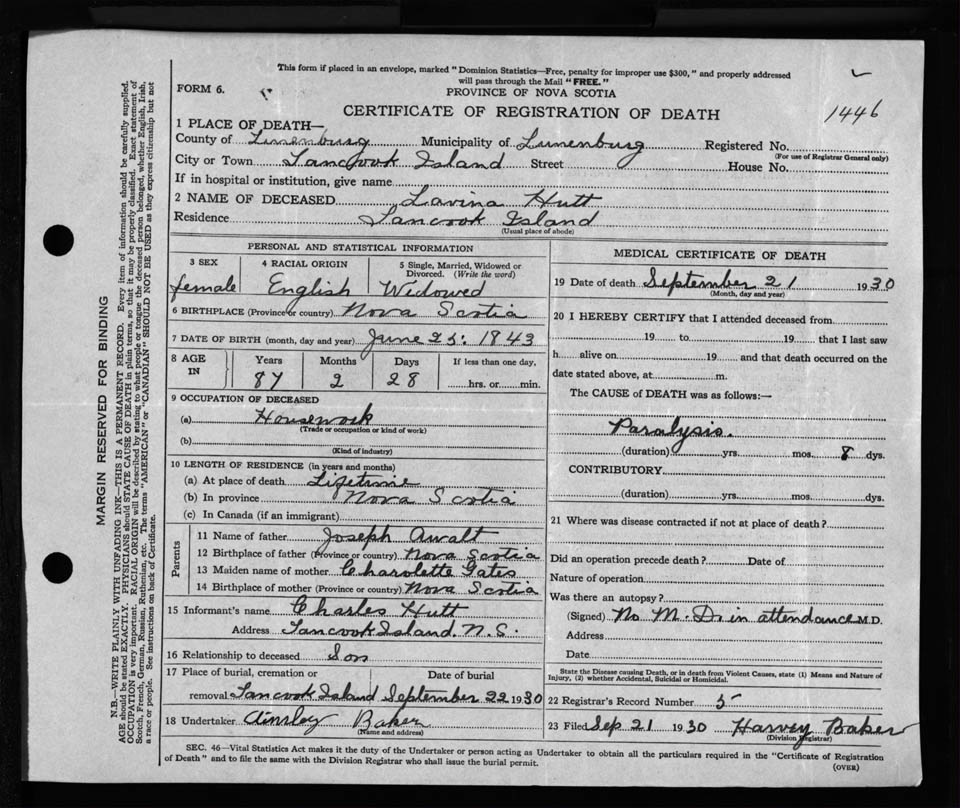 This form if placed in an envelope, marked "Dominion Statistics—Free, penalty for improper use $300," and properly addressed
will pass through the Mail "FREE."
FORM 6.
PROVINCE OF NOVA SCOTIA
CERTIFICATE OF REGISTRATION OF DEATH
1446
1 PLACE OF DEATH—
County of Lunenburg Municipality of Lunenburg Registered No.
(For use of Registrar General only)
City or Town Tancook Island Street House No.
If in hospital or institution, give name
2 NAME OF DECEASED Lavina Hutt
Residence Tancook Island
(Usual place of abode)
PERSONAL AND STATISTICAL INFORMATION
3 SEX 4 RACIAL ORIGIN 5 Single, Married, Widowed or
Divorced. (Write the word)
female English Widowed
6 BIRTHPLACE (Province or country) Nova Scotia
7 DATE OF BIRTH (month, day and year) June 25: 1843
8 AGE IN Years Months Days If less than one day,
87 2 28 hrs. or min.
9 OCCUPATION OF DECEASED
(a) Housework
(Trade or occupation or kind of work)
(b)
(Kind of industry)
10 LENGTH OF RESIDENCE (in years and months)
(a) At place of death Lifetime
(b) In province Nova Scotia
(c) In Canada (if an immigrant)
Parents
11 Name of father Joseph Awalt
12 Birthplace of father (Province or country) Nova Scotia
13 Maiden name of mother Charolette Gates
14 Birthplace of mother (Province or Country) Nova Scotia
15 Informant's name Charles Hutt
Address Tancook Island. N.S.
16 Relationship to deceased Son
17 Place of burial, cremation or Date of burial
removal Tancook Island September 22 1930
18 Undertaker Ainsley Baker
(Name and address)
MEDICAL CERTIFICATE OF DEATH
19 Date of death September 21 1930
(Month, day and year)
20 I HEREBY CERTIFY that I attended deceased from
19 to 19 that I last saw
h alive on 19 and that death occurred on the
date stated above, at m.
The CAUSE of DEATH was as follows:—
Paralysis.
(duration) yrs. mos. 8 dys.
CONTRIBUTORY
(duration) yrs. mos. dys.
21 Where was disease contracted if not at place of death?
Did an operation precede death? Date of
Nature of operation
Was there an autopsy?
(Signed) No M.D. in attendance M.D.
Address
Date
State the Disease causing Death, or in death from Violent Causes, state (1) Means and Nature of
Injury, (2) whether Accidental, Suicidal or Homicidal.
22 Registrar's Record Number 5
23 Filed Sep 21 1930 Harvey Baker
(Division Registrar)
SEC. 46—Vital Statistics Act makes it the duty of the Undertaker or person acting as Undertaker to obtain all the particulars required in the "Certificate of Registration
of Death" and to file the same with the Division Registrar who shall issue the burial permit.
(OVER)
MARGIN RESERVED FOR BINDING
N.B.—WRITE PLAINLY WITH UNFADING INK—THIS IS A PERMANENT RECORD. Every item of information should be carefully supplied.
AGE should be stated EXACTLY. PHYSICIANS should STATE CAUSE OF DEATH in plain terms, so that it may be properly classified. Exact statement of
OCCUPATION is very important. RACIAL ORIGIN will be described by stating to what people or tongue the deceased person belonged, whether English, Irish,
Scotch, French, German, Russian, Ruthenian, etc. The terms "AMERICAN" or "CANADIAN" SHOULD NOT BE USED as they express citizenship but not
a race or people. See instructions on back of Certificate.